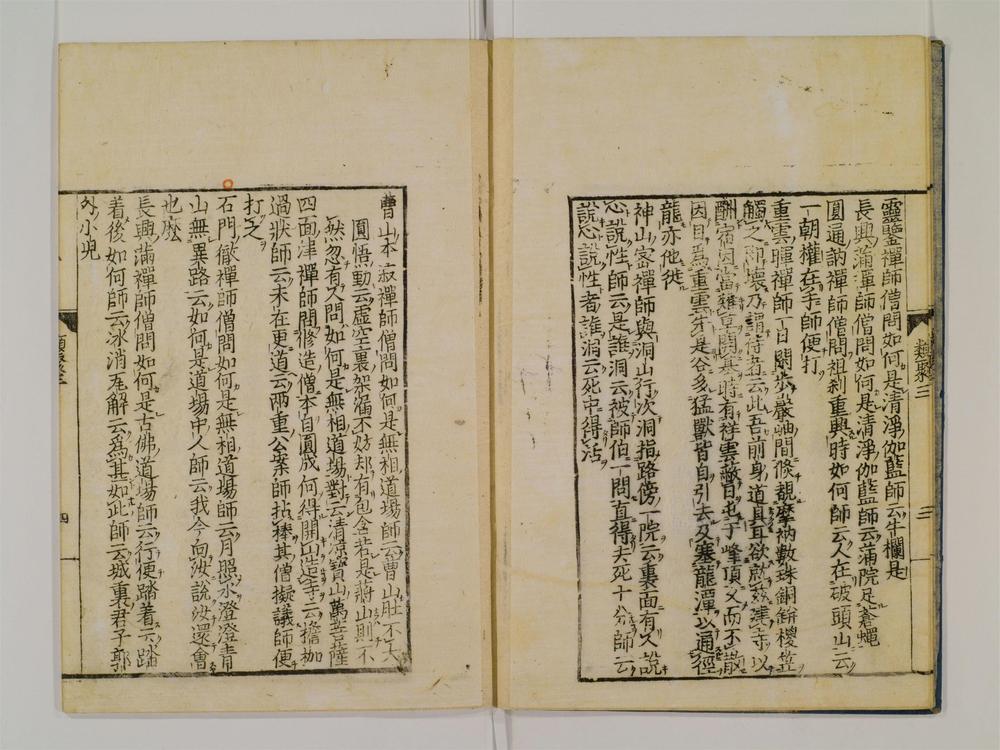 靈鑒禪師僧問如何是清淨伽藍師云牛欄是
長興滿禪師僧問如何是清淨伽藍師云蒲院是蒼蠅
圓通訥禪師僧問祖刹重興時如何師云人在破頭山云
一朝權在手師便打
重雲暉禪師一日閑步巖岫間倐覩摩衲數珠銅鉼椶笠
觸之即壞乃謂侍者云此吾前身道具耳欲就茲建寺以
酬宿因當薙草開基時有祥雲蔽日屯于峰頂久而不散
因目為重雲先是谷多猛獸皆自引去及塞龍潭以通徑
龍亦他徙
神山密禪師與洞山行次洞指路傍一院云裏面有人說
心說性師云是誰洞云被師伯一問直得去死十分師云
說心說性者誰洞云死中得活
類聚二
三
曹山本寂禪師僧問如何是無相道場師云曹山壯不大
圓悟勤云虛空裏架
不妨却有包含若是蔣山則不
然忽有人問如何是無相道場對云清涼寶山萬菩薩
四面津禪師問修造僧本自圓成何得開山造寺云擔枷
過狀師云未在更道云兩重公案師拈棒其僧擬議師便
打之
石門徹禪師僧問如何是無相道場師云月照水澄澄青
山無異路云如何是道場中人師云我今向汝說汝還會
也麼
長興滿禪師僧問如何是古佛道場師云行便踏着云踏
着後如何師云冰消瓦解云為甚如此師云城裏君子郭
外小兒
四